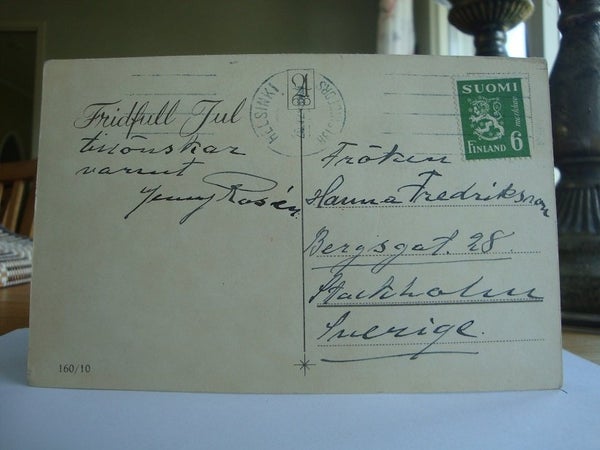 Fridfull Jul
tillönskar
varmt
Jenny Rosén
HELSINKI
SUOMI
FINLAND 6
Fröken
Hanna Fredriksson
Bergsgat. 28.
Stockholm
Sverige.
160/10